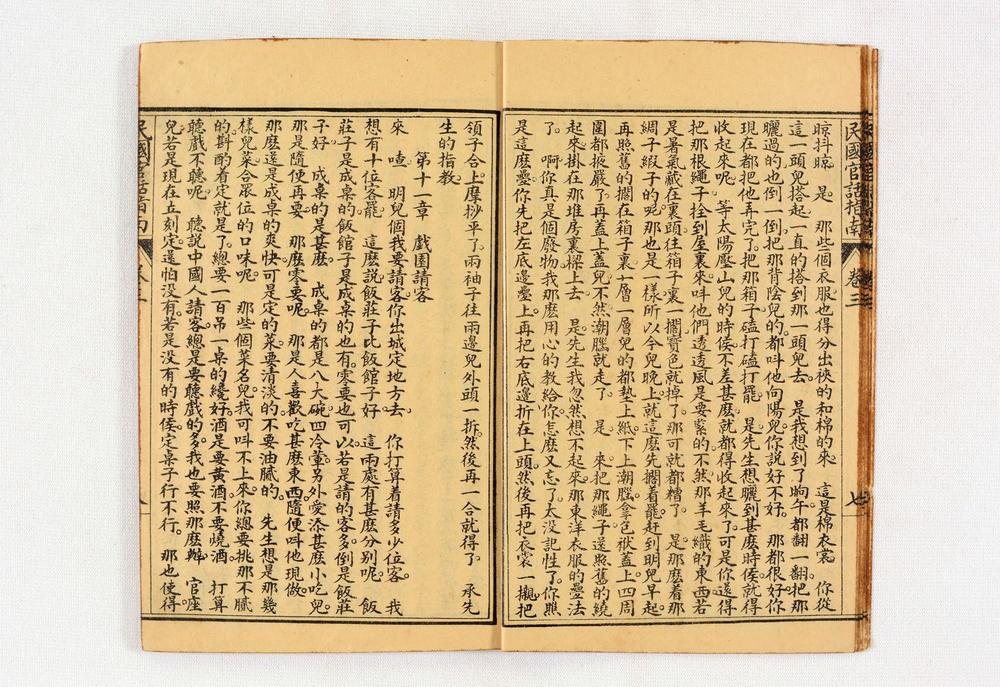 民國官話指南 卷三 七
晾抖晾 是 那些個衣服也得分出裌的和棉的來 這是棉衣裳 你從
這一頭兒搭起一直的搭到那一頭兒去 是我想到了晌午都翻一翻把那
曬過的也倒一倒把那背陰兒的都叫他向陽兒你說好不好 那都很好你
現在都把他弄完了把那箱子磕打磕打罷 是先生想曬到甚麼時候就得
收起來呢 等太陽壓山兒的時候不差甚麼就都得收起來了可是你還得
把那根繩子拴到屋裏來叫他們透透風是要緊的不然那羊毛織的東西若
是暑氣藏在裏頭往箱子裏一擱顏色就掉了那可就都糟了 是那麼着那
綢子緞子的呢那也是一樣所以今兒晚上就這麼先擱着罷赶到明兒早起
再照舊的擱在箱子裏一層一層兒的都墊上紙下上潮腦拿包袱蓋上四周
圍都掖嚴了再蓋上蓋兒不然潮腦就走了 是 來把那繩子還照舊的繞
起來掛在那堆房裏樑上去 是先生我忽然想不起來那東洋衣服的疊法
了 啊你真是個廢物我那麼用心的教給你怎麼又忘了太没記性了你瞧
是這麼疊你先把左底邊疊上再把右底邊折在上頭然後再把衣裳一襯把
領子合上摩挱平了兩袖子往兩邊兒外頭一折然後再一合就得了 承先
生的指教
第十一章 戲園請客
來 喳 明兒個我要請客你出城定地方去 你打算着請多少位客 我
想有十位客罷 這麼說飯莊子比飯館子好 這兩處有甚麼分別呢 飯
莊子是成桌的飯館子是成桌的也有零要也可以若是請的客多倒是飯莊
子好 成桌的是甚麼 成桌的都是八大碗四冷葷另外愛添甚麼小吃兒
那是隨便再要 那麼零要呢 那是人喜歡吃甚麼東西隨便叫他現做
那麼還是成桌的爽快可是定的菜要清淡的不要油膩的 先生想是那幾
樣兒菜合眾位的口味呢 那些個菜名兒我可叫不上來你總要挑那不膩
的斟酌着定就是了總要一百吊一桌的纔好酒是要黃酒不要燒酒 打算
聽戲不聽呢 聽説中國人請客總是要聽戲的多我也要照那麼辦 官座
兒若是現在立刻定還怕没有若是没有的時候定桌子行不行 那也使得
民國官話指南